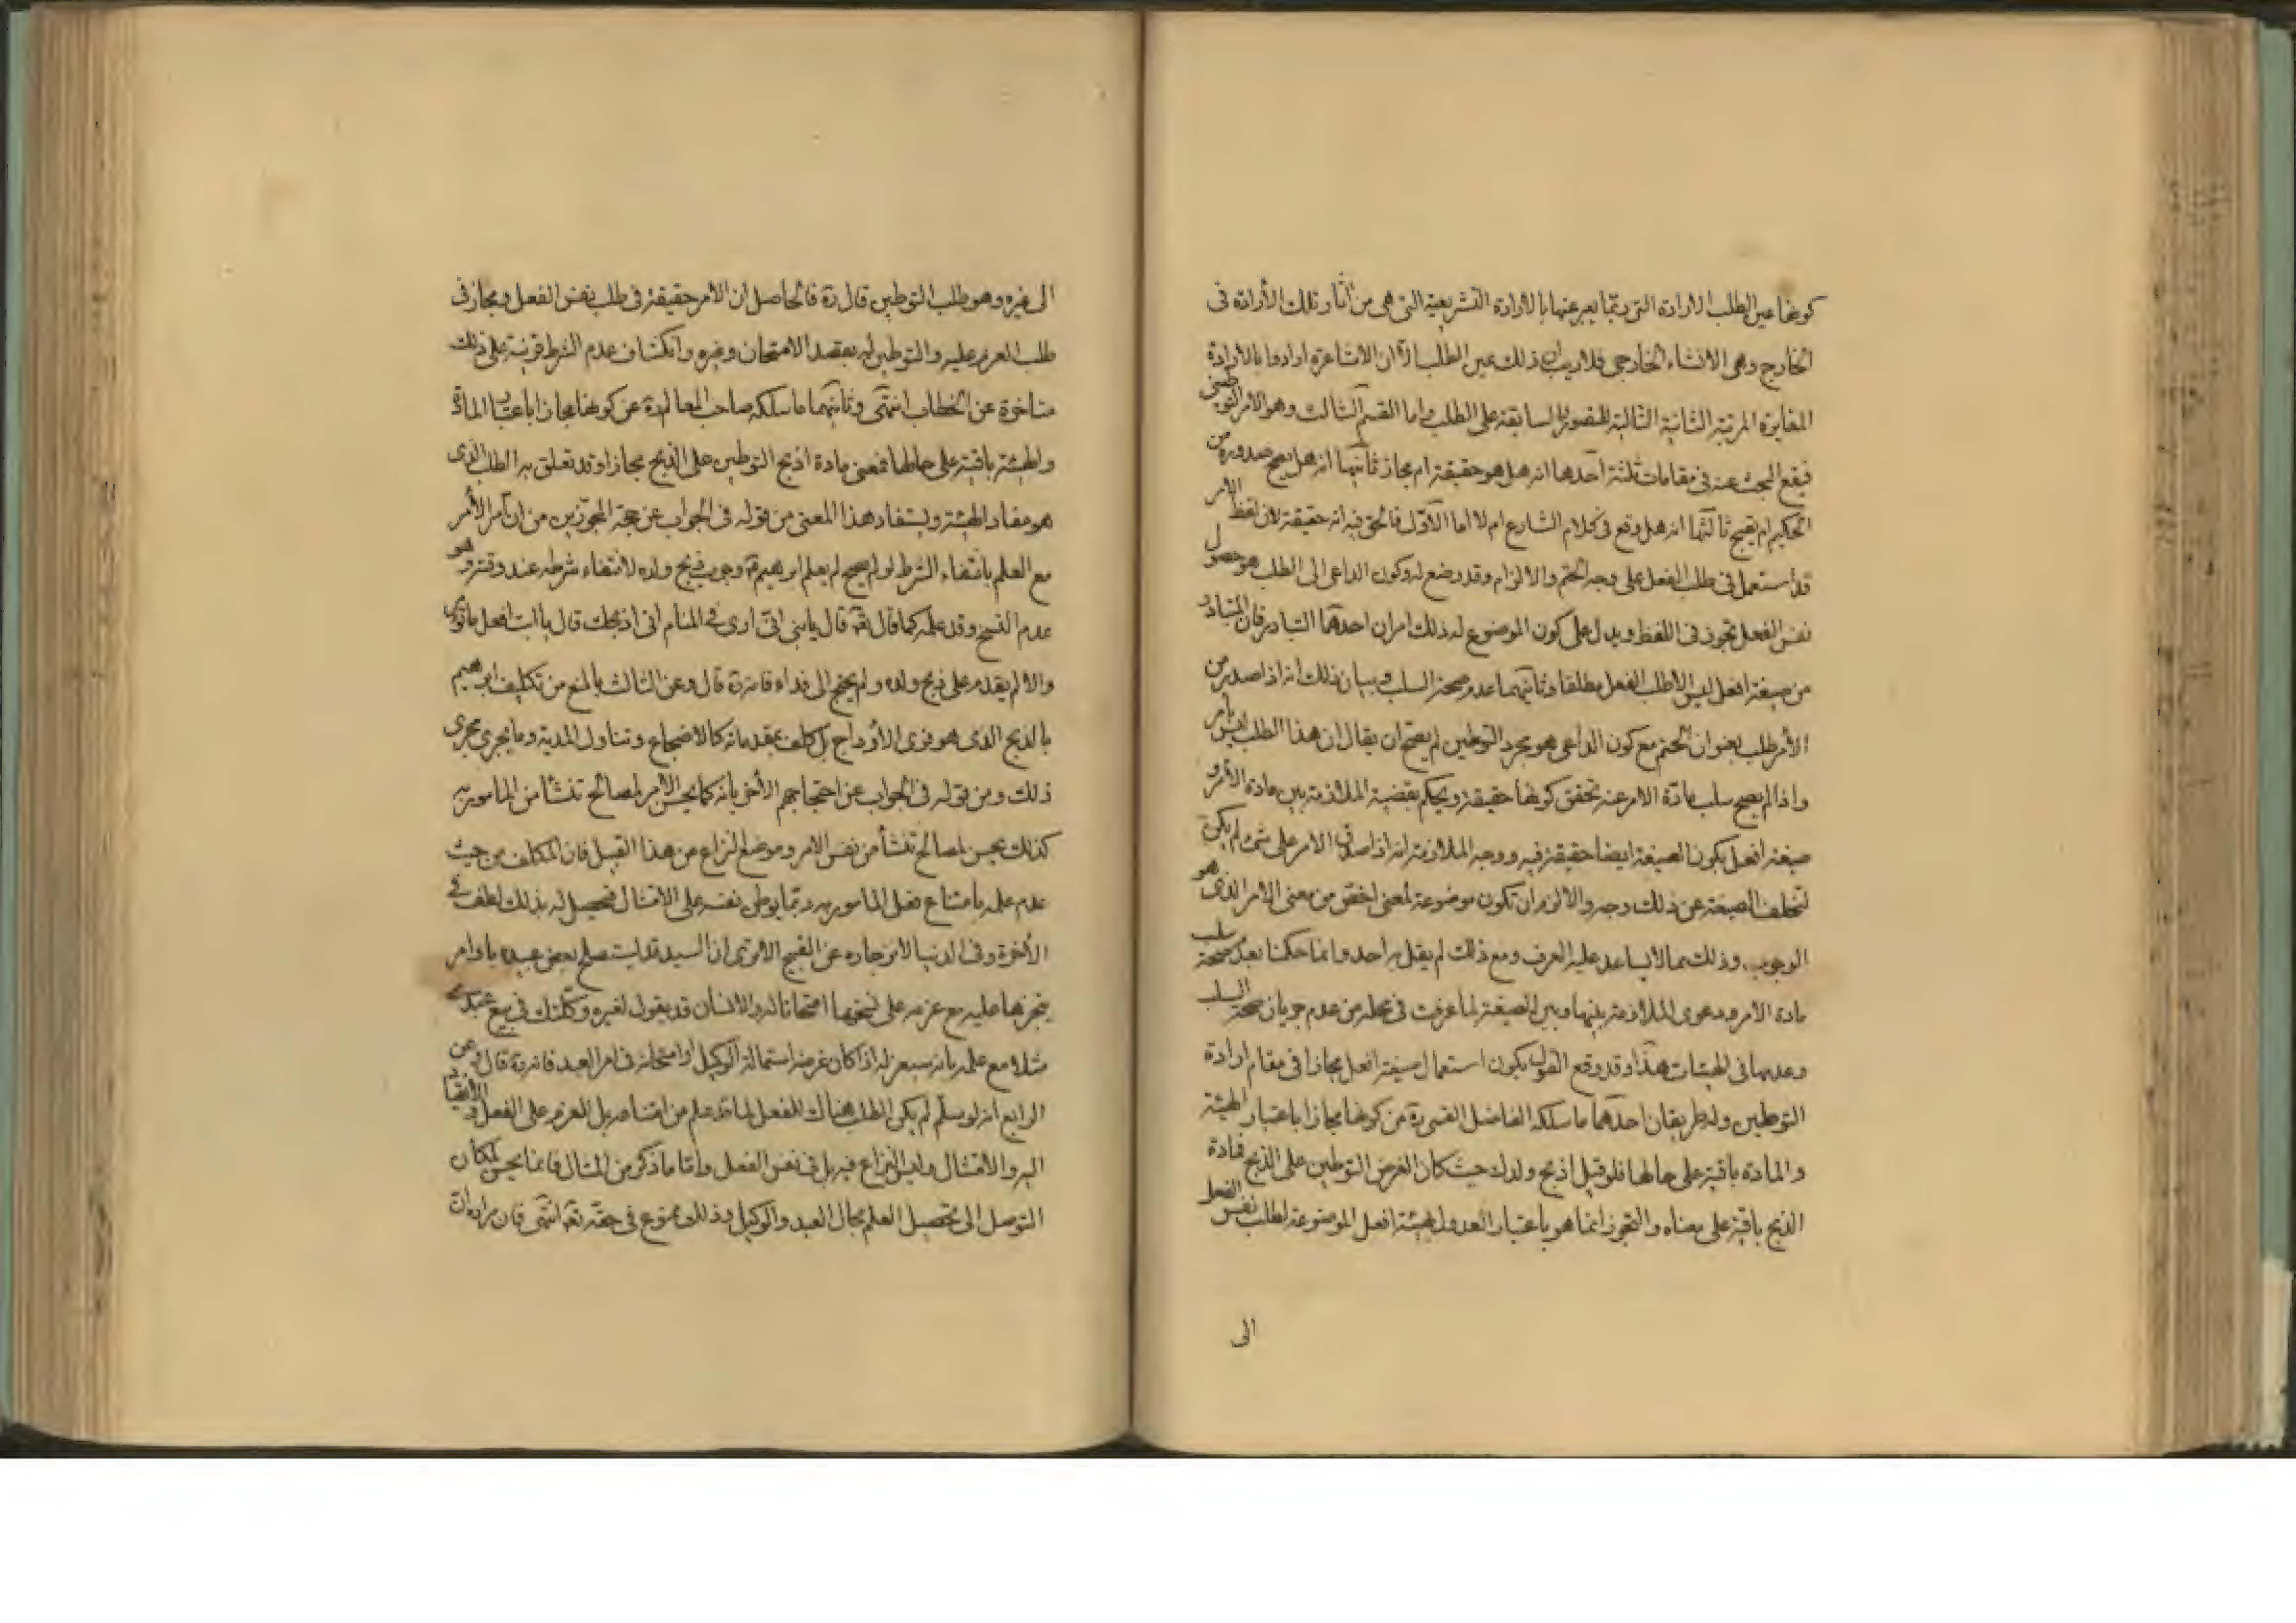 كونها عين الطلب الارادة التى ربّما يعبر عنها بالارادة التشريعية التى هى من اثار تلك الأرادة فى
الخارج وهى الانشاء الخارجى فلا ريب ان ذلك عين الطلب الا ان الاشاعرة ارادوا بالارادة
المغايرة المرتبة الثانية التالية للتصور السابقة على الطلب واما القسم الثالث وهو الامر التوطينى
فيقع البحث عنه فى مقامات ثلثة احدها انه هل هو حقيقة ام مجاز ثانيها انه هل يصح صدوره من
الحكيم ام يقبح ثالثها انه هل وقع فى كلام الشارع ام لا اما الاوّل فالحق فيه انه حقيقة لان لفظ الامر
قد استعمل فى طلب الفعل على وجه الحتم والالزام وقد وضع له وكون الداعى الى الطلب هو حصول
نفس الفعل تجوز فى اللفظ ويدل على كون الموضوع له ذلك امران احدهما التبادر فان المتبادر
من صيغة افعل ليس الا طلب الفعل مطلقا وثانيهما عدم صحة السلب وبيان ذلك انه اذا صدر من
الأمر طلب بعنوان الحتم مع كون الداعى هو مجرد التوطين لم يصح ان يقال ان هذا الطلب ليس بامر
واذا لم يصح سلب مادّة الامر عنه تحقق كونها حقيقة ويحكم بقضية الملازمة بين مادة الامر و
صيغة افعل بكون الصيغة ايضا حقيقة فيه ووجه الملازمة انه اذا صدق الامر على شئ لم يكن
لتخلف الصيغة عن ذلك وجه والا لزم ان تكون موضوعة لمعنى اخص من معنى الامر الذى هو
الوجوب وذلك مما لا يساعد عليه العرف ومع ذلك لم يقل به احد وانما حكمنا بعدم صحة سلب
مادة الامر ودعوى الملازمة بينها وبين الصيغة لما عرفت فى محله من عدم جريان صحة السلب
وعدمها فى الهيئات هذا وقد وقع القول بكون استعمال صيغة افعل مجازا فى مقام ارادة
التوطين وله طريقان احدهما ما سلكه الفاضل القمى ره من كونها مجازا باعتبار الهيئة
والمادة باقية على حالها فلو قيل اذبح ولدك حيث كان الغرض التوطين على الذبح فمادة
الذبح باقية على معناه والتجوز انما هو باعتبار العدول بهيئة افعل الموضوعة لطلب نفس الفعل
الى
الى غيره وهو طلب التوطين قال ره فالحاصل ان الامر حقيقة فى طلب نفس الفعل ومجاز فى
طلب العزم عليه والتوطين له بقصد الامتحان وغيره وانكشاف عدم الشرط قرينة على ذلك
متاخرة عن الخطاب انتهى وثانيهما ما سلكه صاحب المعالم ره عن كونها مجازا باعتبار المادة
والهيئة باقية على حالها فمعنى مادة اذبح التوطين على الذبح مجازا وقد تعلق به الطلب الذى
هو مفاد الهيئة ويستفاد هذا المعنى من قوله فى الجواب عن حجة المجوزين من ان امر الآمر
مع العلم بانتفاء الشرط لو لم يصح لم يعلم ابرهيم ع وجوب ذبح ولده لانتفاء شرطه عند وقته وهو
عدم النسخ وقد علم كما قال تعه قال يا بنى انى ارى فى المنام انى اذبحك قال يا ابت افعل ما تؤمر
والا لم يقدم على ذبح ولده ولم يحتج الى فداء فانه ره قال وعن الثالث بالمنع من تكليف ابرهيم
بالذبح الذى هو فرى الأوداج بل كلف بمقدماته كالاضجاع وتناول المدية وما يجرى مجرى
ذلك ومن قوله فى الجواب عن احتجاجهم الأخر بانه كما يحسن الامر لمصالح تنشأ من المامور به
كذلك يحسن لمصالح تنشأ من نفس الامر وموضع النزاع من هذا القبيل فان المكلف من حيث
عدم علمه بامتناع فعل المامور به ربّما يوطن نفسه على الامتثال فيحصل له بذلك لطف فى
الأخرة وفى الدنيا لانزجاره عن القبيح الا ترى ان السيد قد يستصلح بعض عبيده باوامر
ينجزها عليه مع عزمه على نسخها امتحانا له والانسان قد يقول لغيره وكلتك فى بيع عبدى
مثلا مع علمه بانه سيعزله اذا كان غرضه استمالة الوكيل او امتحانه فى امر العبد فانه ره قال وعن
الرابع انه لو سلم لم يكن الطلب هناك للفعل لما قد علم من امتناعه بل للعزم على الفعل والانقياد
اليه والامتثال وليس النزاع فيه بل فى نفس الفعل وامّا ما ذكر من المثال فانما يحسن لمكان
التوصل الى تحصيل العلم بحال العبد والوكيل وذلك ممنوع فى حقه تعه انتهى فان مراده ان